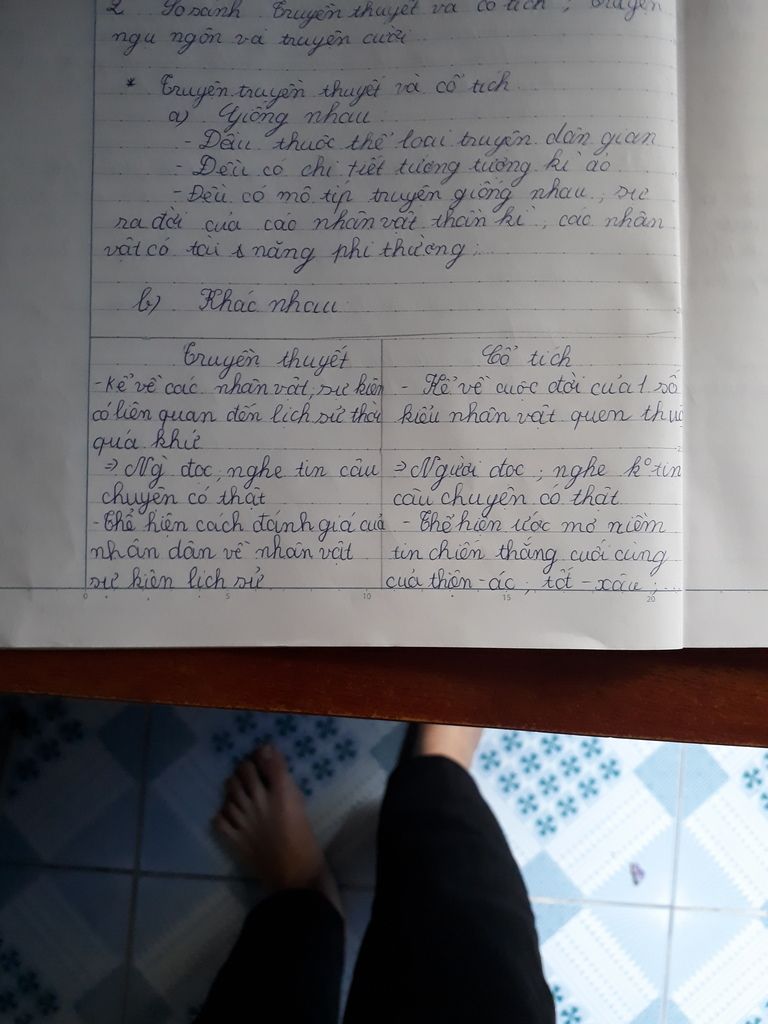 2 So sánh truyền thuyết và cổ tích ; truyện
ngụ ngôn và truyện cười
* Truyện truyền thuyết và cổ tích
a) Giống nhau
- Đều thuộc thể loại truyện dân gian
- Đều có chi tiết tưởng tượng kì ảo
- Đều có mô típ truyện giống nhau, sự
ra đời của các nhân vật thần kì, các nhân
vật có tài năng phi thường ;
b) Khác nhau
Truyền thuyết
- Kể về các nhân vật, sự kiện
có liên quan đến lịch sử thời
quá khứ
⇒ Ng` đọc, nghe tin câu
chuyện có thật
- Thể hiện cách đánh giá của
nhân dân về nhân vật
sự kiện lịch sử
Cổ tích
- Kể về cuộc đời của 1 số
kiểu nhân vật quen thuộ
⇒ Người đọc ; nghe k° tin
câu chuyện có thật
- Thể hiện ước mơ niềm
tin chiến thắng cuối cùng
của thiện - ác ; tốt - xấu ;...
0 5 10 15 20